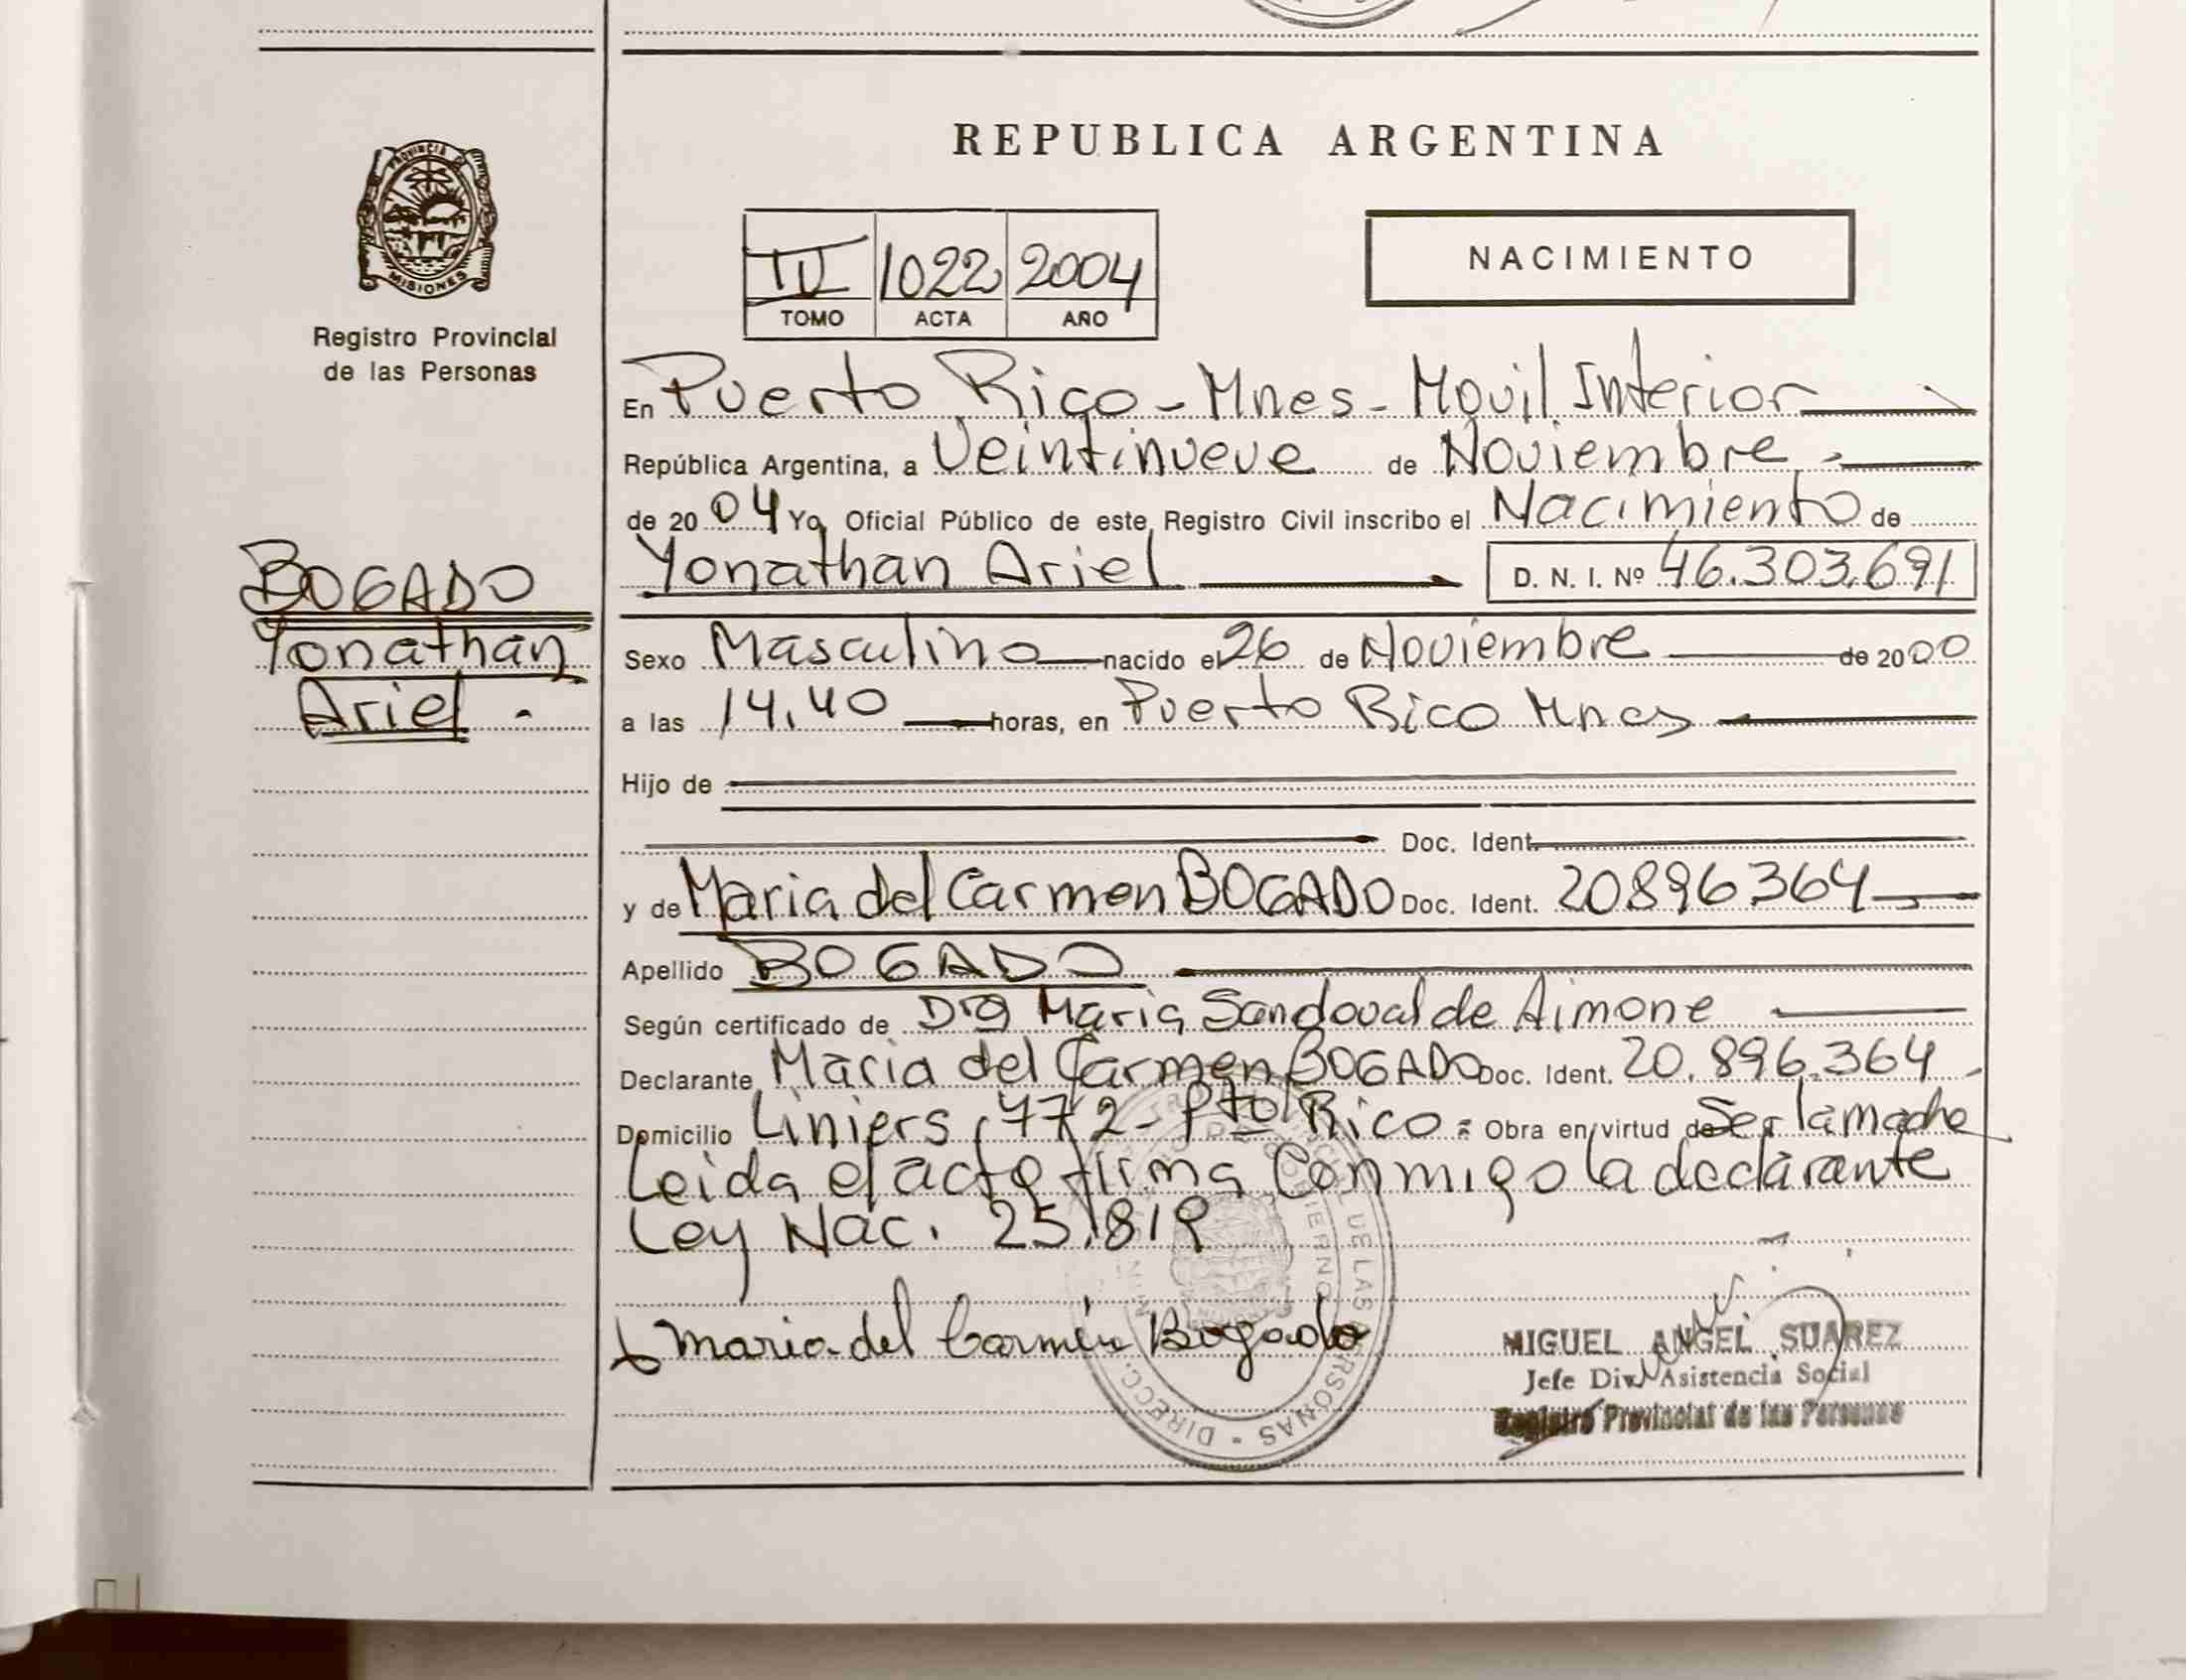 PROVINCIA D
MISIONES
Registro Provincial
de las Personas
BOGADO
Yonathan
Ariel.
REPUBLICA ARGENTINA
IV 1022 2004
TOMO ACTA AÑO
NACIMIENTO
En Puerto Rico - Mnes - Movil Interior
República Argentina, a Veintinueve de Noviembre.
de 2004 Yo, Oficial Público de este, Registro Civil inscribo el Nacimiento de
Yonathan Ariel D. N. I. Nº 46.303.691
Sexo Masculino nacido el 26 de Noviembre de 2000
a las 14,40 horas, en Puerto Rico Mnes
Hijo de
Doc. Ident.
y de Maria del Carmen BOGADO Doc. Ident. 20896364
Apellido BOGADO
Según certificado de Dra Maria Sandoval de Aimone
Declarante Maria del Carmen BOGADO Doc. Ident. 20.896.364
Domicilio Liniers, 772 - Pto Rico = Obra en virtud de Ser la madre
Leida el acta firma Conmigo la declarante
Ley Nac. 25.819
Maria del Carmen Bogado
MIGUEL ANGEL SUAREZ
Jefe Div. Asistencia Social
Registro Provincial de las Personas
DE LAS PERSONAS - DIRECC.